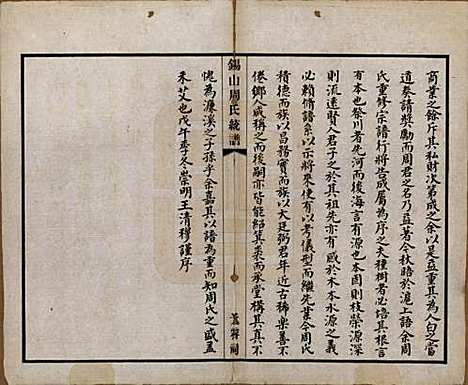 商業之餘斥其私財次第成之余以是益重其為人白之當
道奏請獎勵而周君之名乃益著今秋晤於滬上語余周
氏重修宗譜行將告成屬為序之夫種樹者必培其根言
有本也祭川者先河而後海言有源也本固則枝榮源深
則流遠賢人君子之於其祖先亦有感於木本水源之義
必賴脩譜系以示將來使有以考儀型而繼先業今周氏
積德而族以昌務實而族以大廷弼君年近古稀樂善不
倦鄉人咸稱之而後嗣亦皆能紹箕裘而承堂構其真不
愧為濂溪之子孫乎余嘉其以譜為重而知周氏之盛蓋
未艾也戊午季冬崇明王清穆謹序
錫山周氏統譜